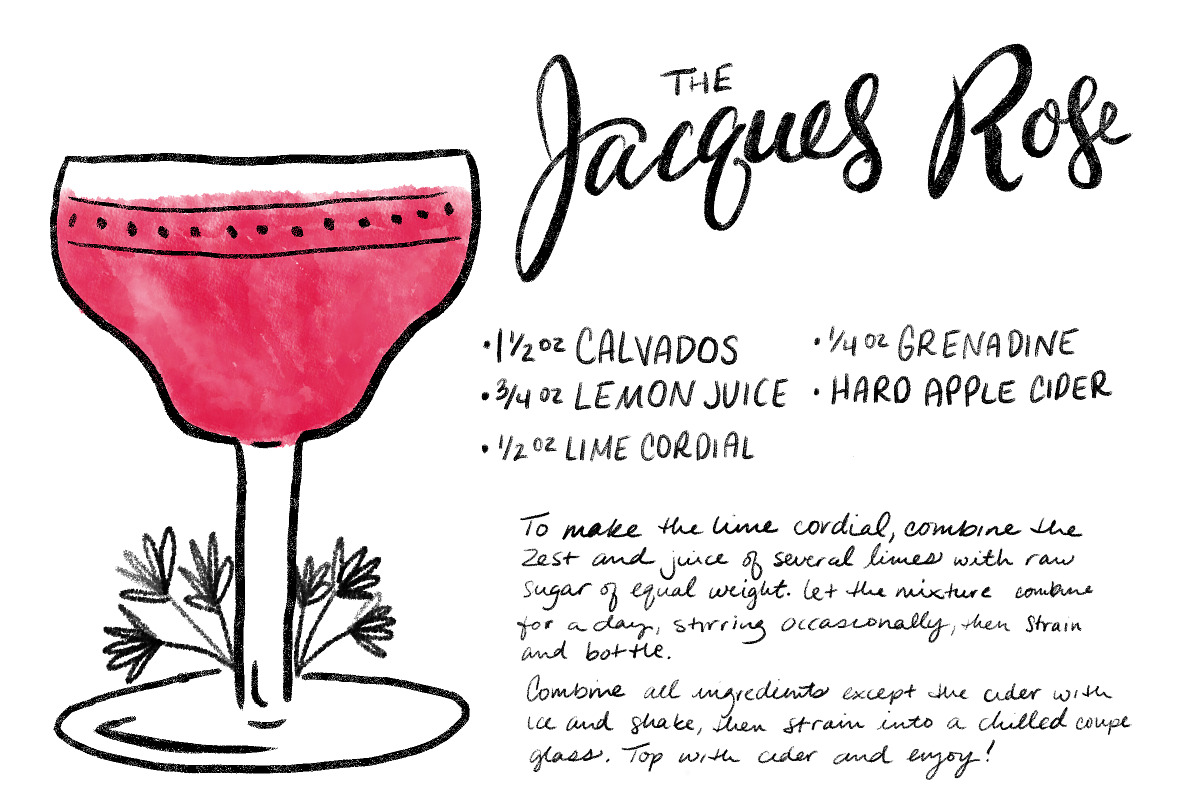 THE
Jacques Rose
• 1 1/2 oz CALVADOS
• 3/4 oz LEMON JUICE
• 1/2 oz LIME CORDIAL
• 1/4 oz GRENADINE
• HARD APPLE CIDER
To make the lime cordial, combine the
zest and juice of several limes with raw
sugar of equal weight. Let the mixture combine
for a day, stirring occasionally, then strain
and bottle.
Combine all ingredients except the cider with
ice and shake, then strain into a chilled coupe
glass. Top with cider and enjoy!